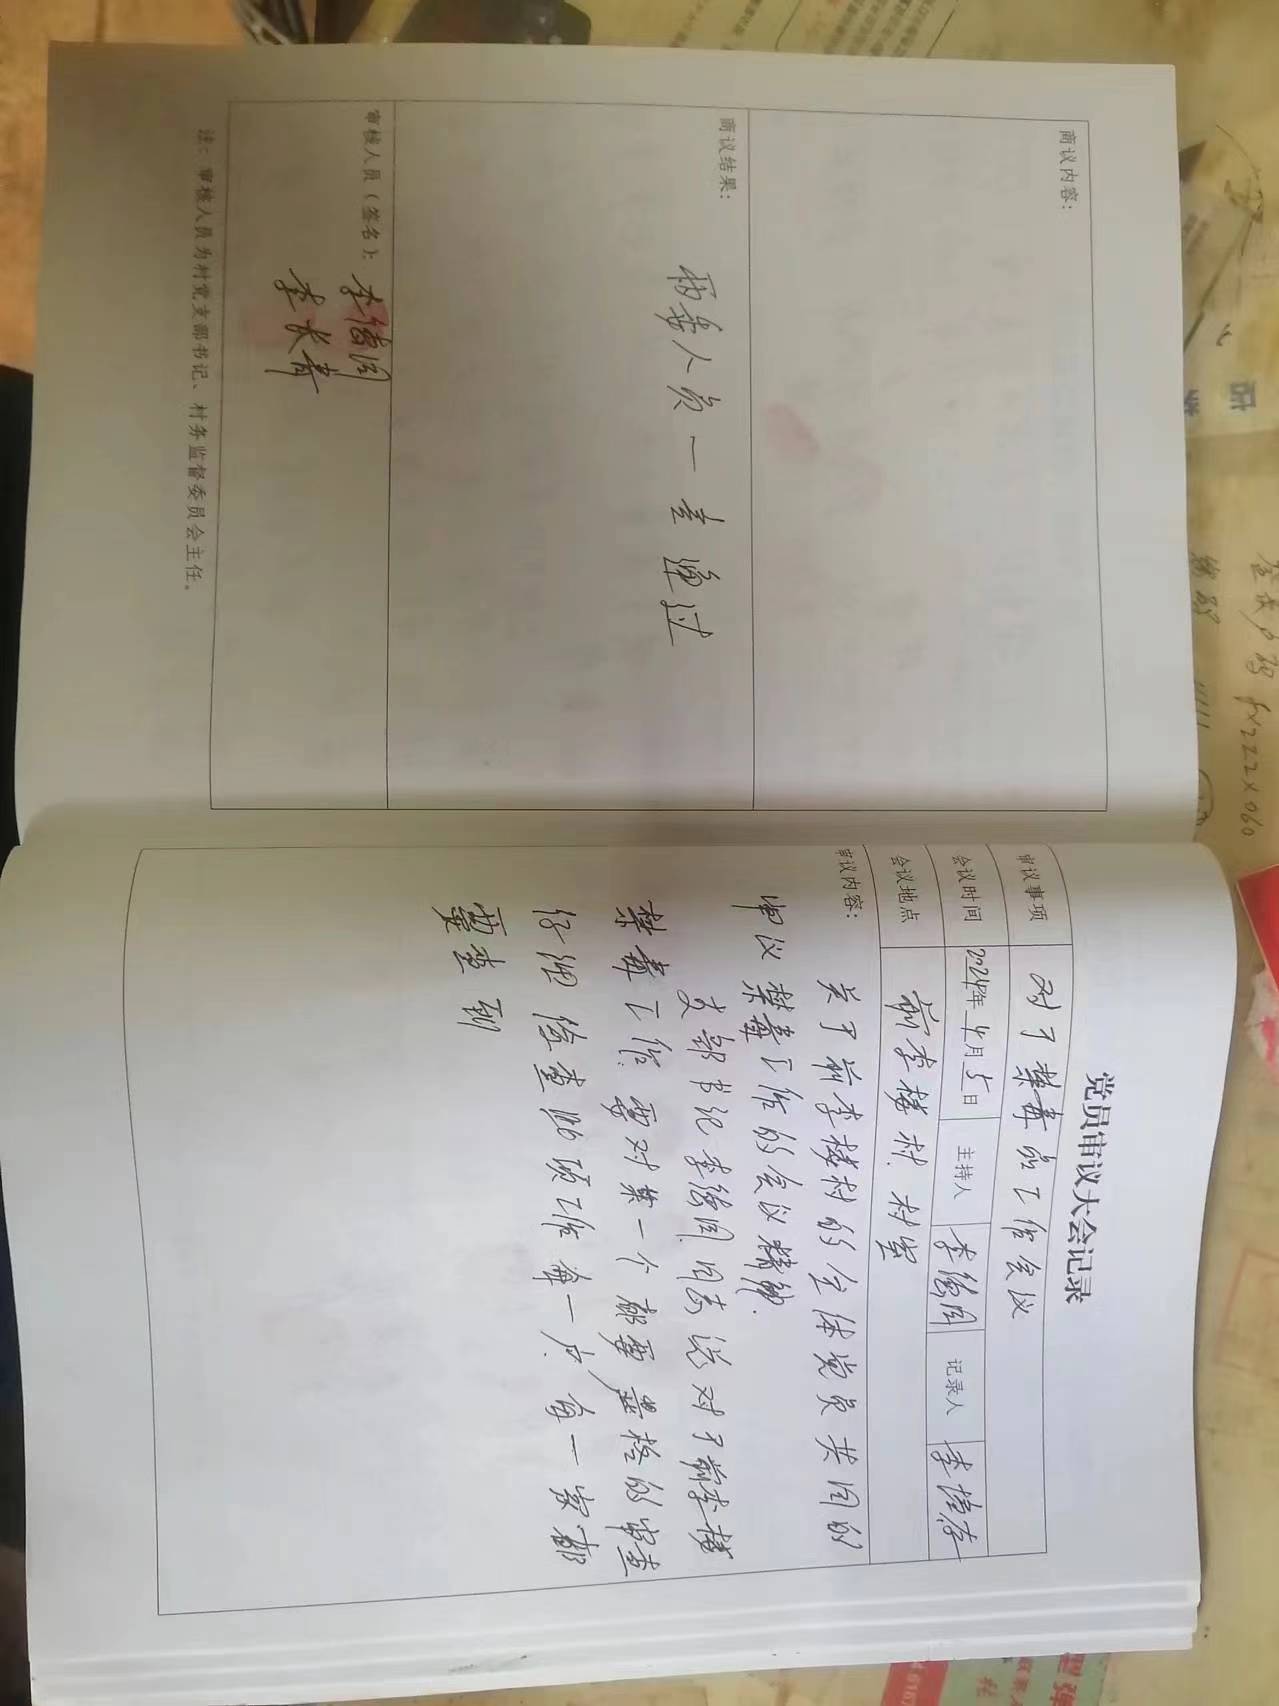 商议内容：
商议结果：
两委人员一至通过
审核人员（签名）：李德同
李长青
注：审核人员为村党支部书记、村务监督委员会主任。
党员审议大会记录
审议事项 对于禁毒的工作会议
会议时间 2024年4月5日 主持人 李德同 记录人 李
会议地点 前李楼村 村室
审议内容：
关于前李楼村的全体党员共同的
审议禁毒工作的会议精神.
支部书记李德同同志说对于前李楼
禁毒工作 要对某一个都要严格的审查
仔细 检查 此项工作每一户.每一家都
要查到